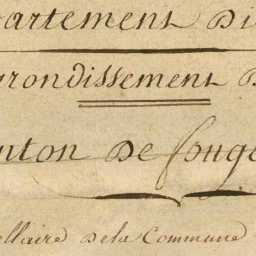 artement D
rondissement D
nton De Fouge
llaire De la Commune